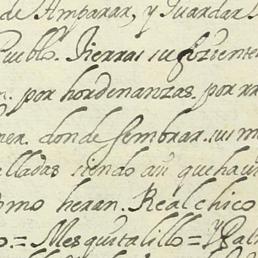 de Amparar, y Guardar
Pueblo. Tierras sufizientes
por hordenanzas. por
donde sembrar. sus m
lladas siendo así que hau
omo heran. Real chico
o.= Mesquitalillo = y Pal